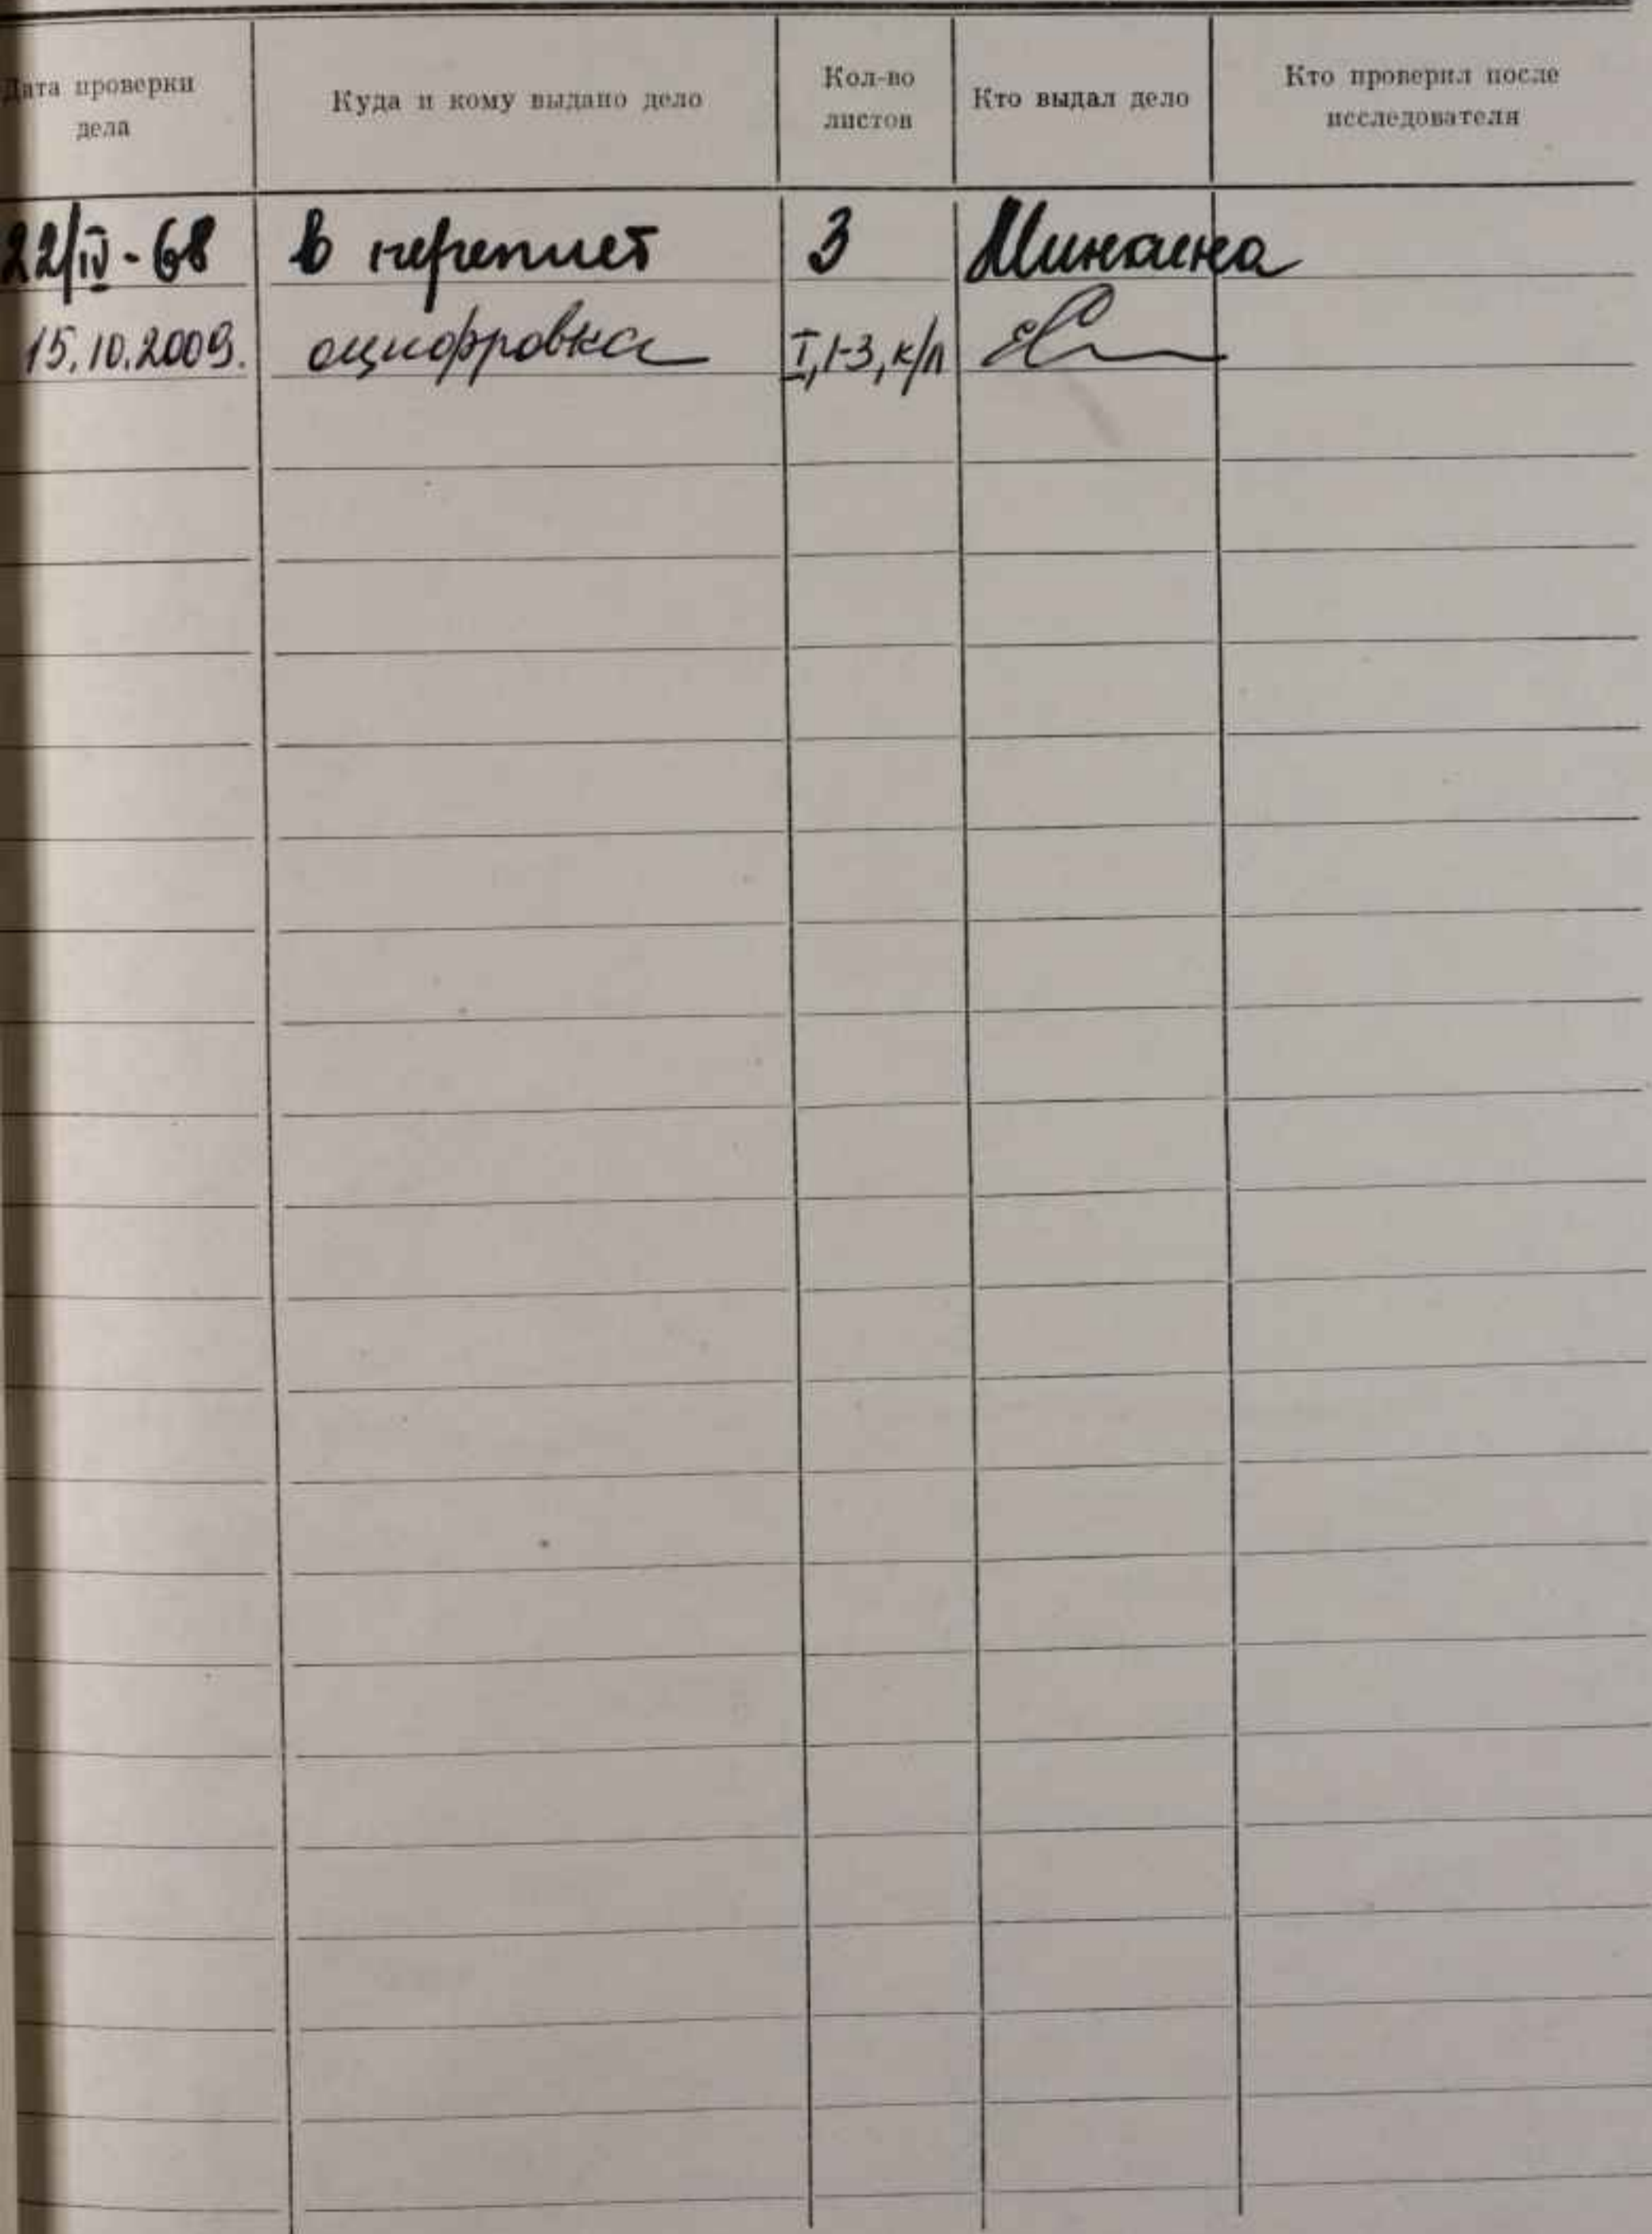 Дата проверки дела
Куда и кому выдано дело
Кол-во листов
Кто выдал дело
Кто проверил после исследователя
22/IV-68 в переплет 3
15.10.2009. оцифровка I, 1-3, к/л